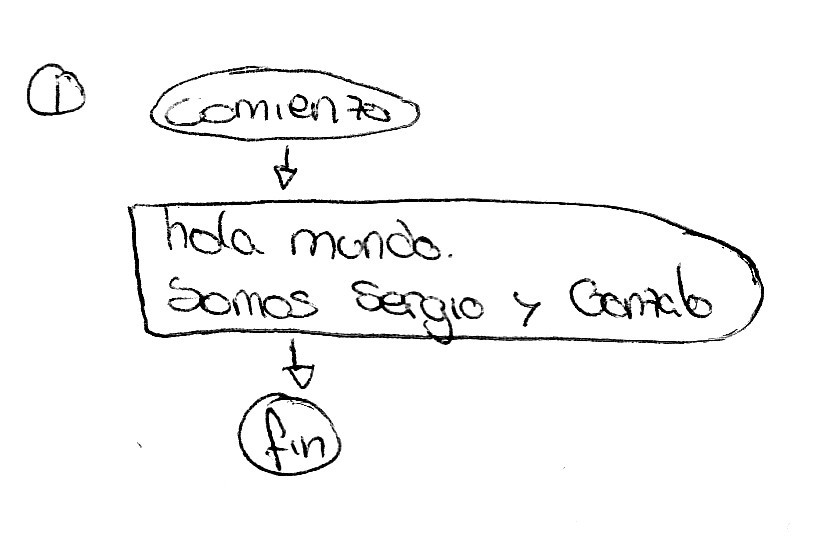 1
comienzo
hola mundo.
Somos Sergio y Gonzalo
fin